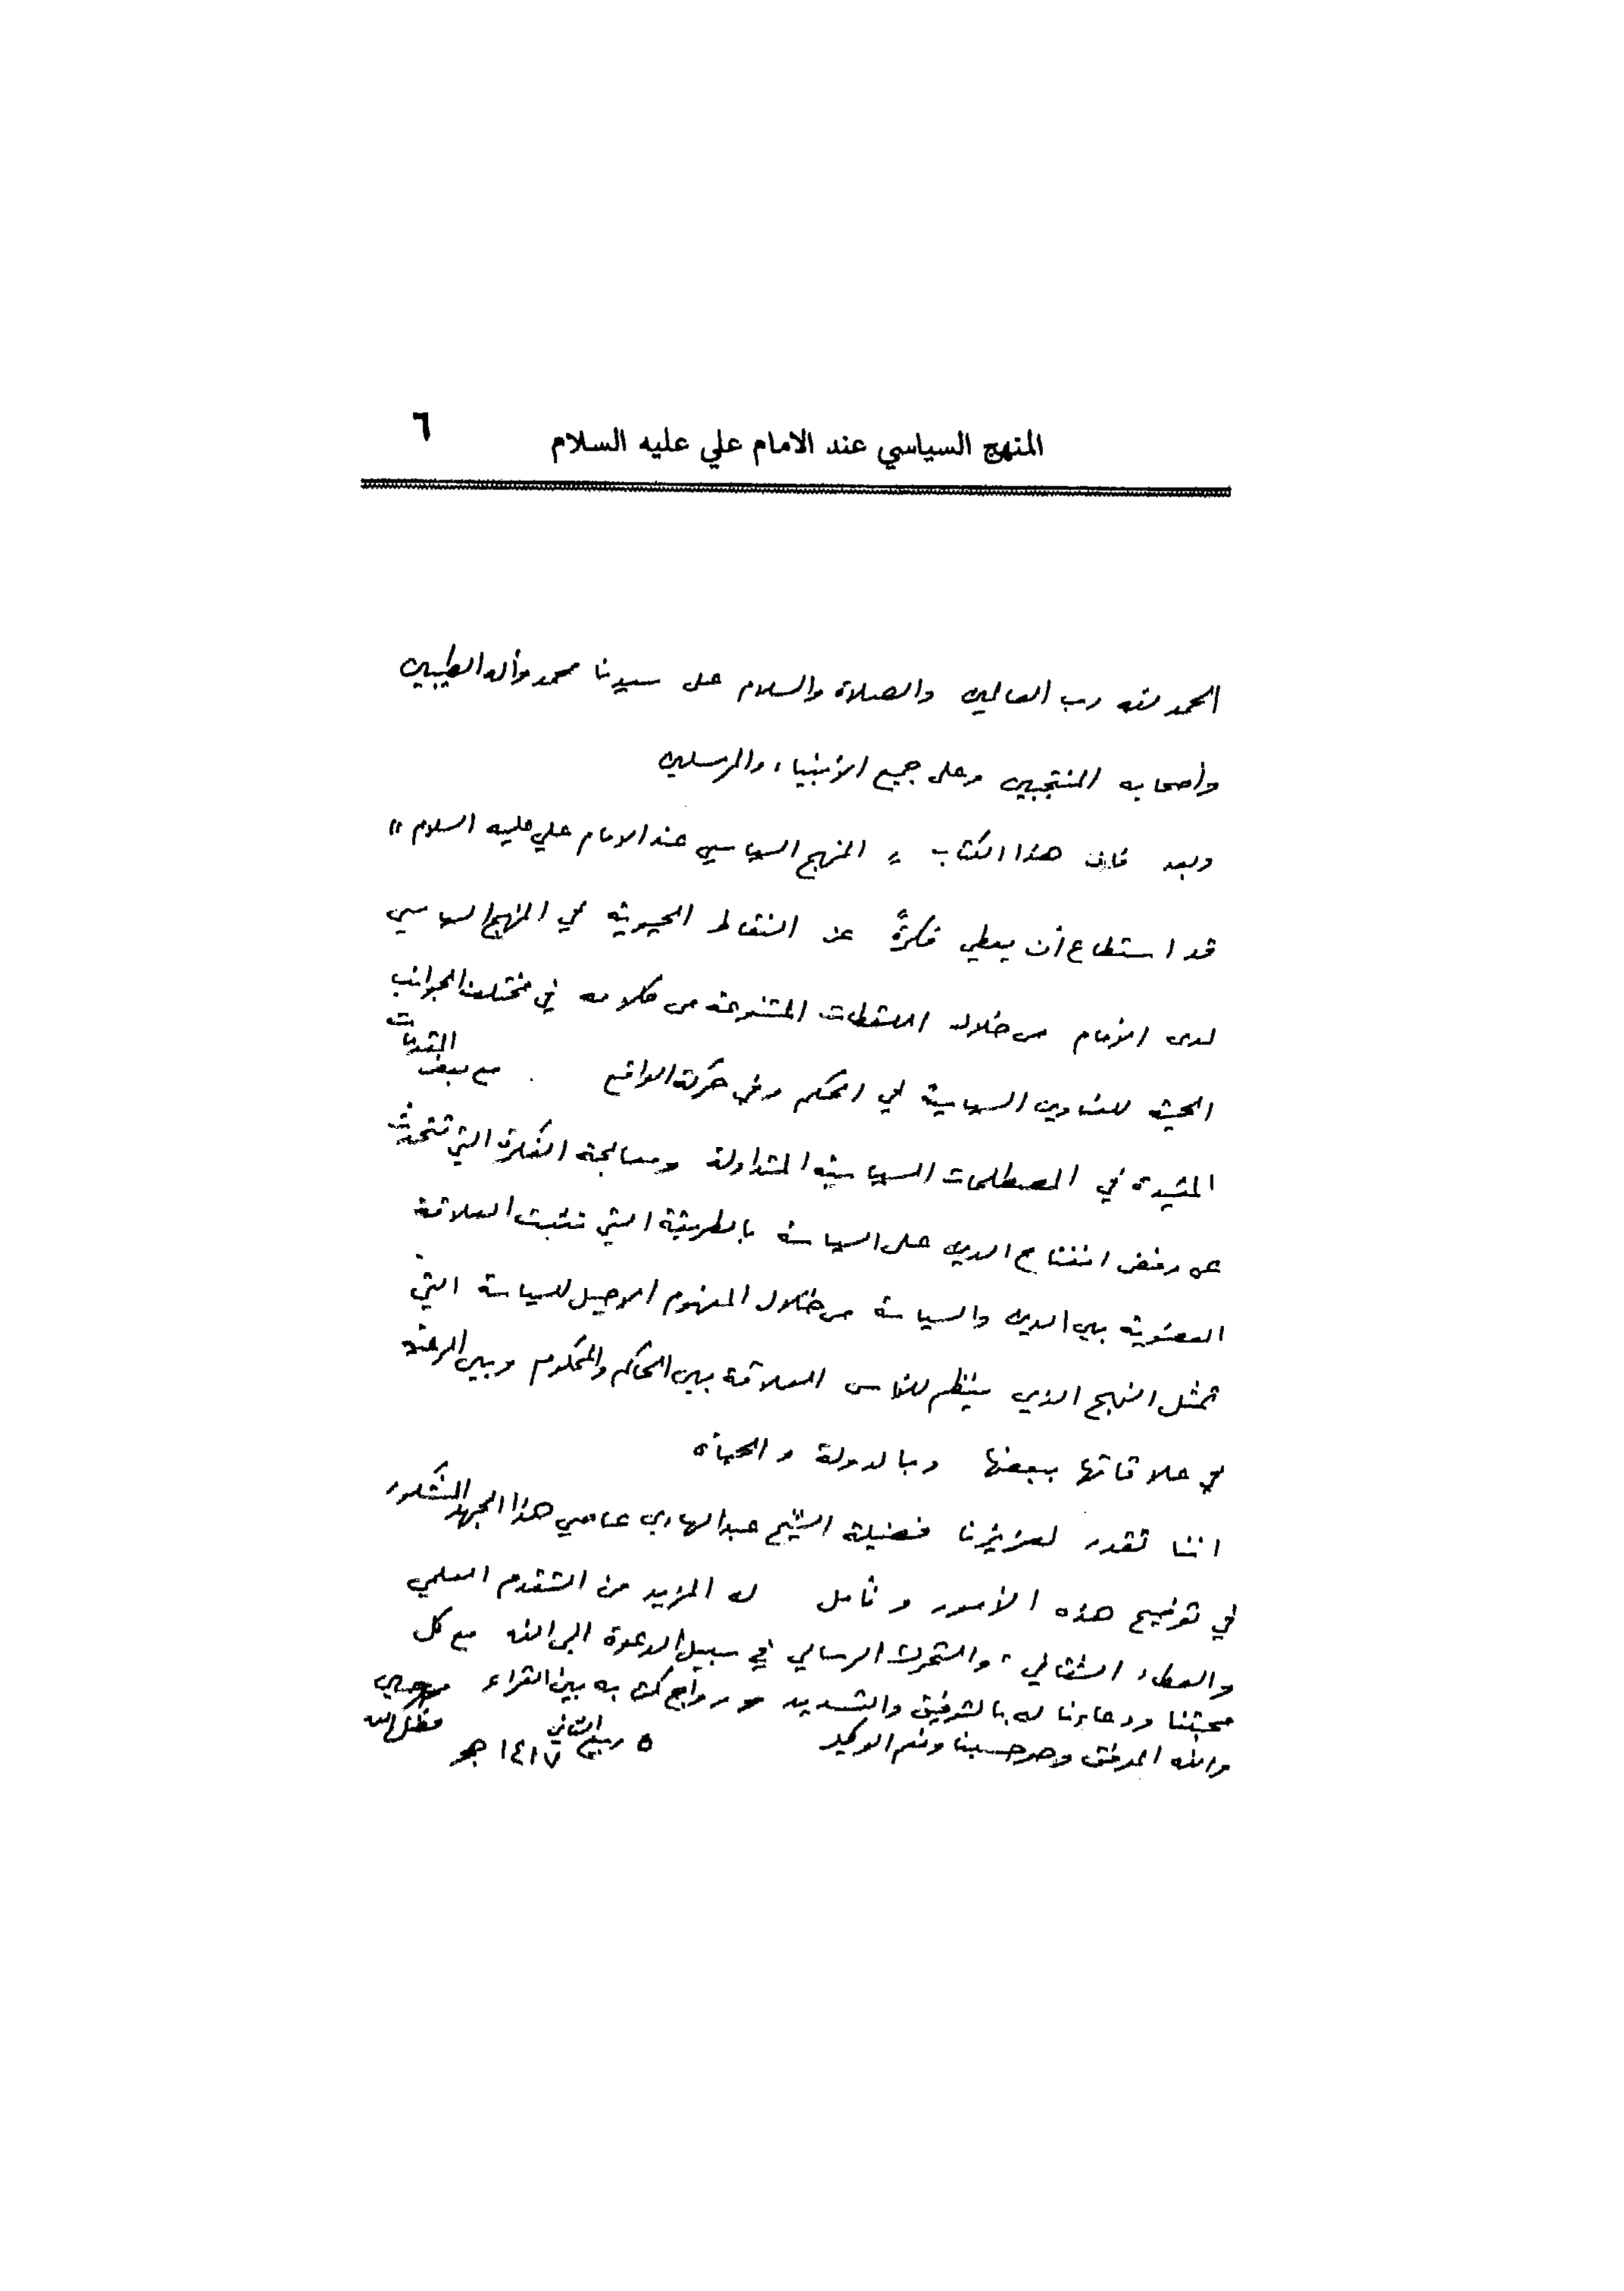 المنهج السياسي عند الامام علي عليه السلام ٦
الحمد لله رب العالمين والصلاة والسلام على سيدنا محمد وآله الطيبين
وأصحابه المنتجبين وعلى جميع الأنبياء والمرسلين
وبعد فان هذا الكتاب " المنهج السياسي عند الامام علي عليه السلام "
قد استطاع أن يعطي فكرةً عن النقاط الحيوية في المنهج السياسي
لدى الإمام من خلال اللقطات المتنوعة من كلامه في مختلف الجوانب
الحية للعناوين السياسية في الحكم وفي حركة الواقع مع بعض
المثيرة في المصطلحات السياسية المتداولة ومعالجة الفكرة التي تتحدث
عن رفض انفتاح الدين على السياسة بالطريقة التي تثبت العلاقة
العضوية بين الدين والسياسة من خلال المفهوم الاصيل للسياسة التي
تمثل النهج الذي ينظم للناس العلاقة بين الحاكم والمحكوم وبين الرعية
في علاقاتها ببعضها وبالدولة والحياة
اننا نقدر لعزيزنا فضيلة الشيخ عبد الهادي عاصي هذا الجهد المشكور
في توضيح هذه الأمور ونأمل له المزيد من التقدم العلمي
والعطاء الثقافي، والتحرك الرسالي في سبيل الدعوة الى الله مع كل
محبتنا ودعاءنا له بالتوفيق والتسديد ورواج كتابه بين القراء
والله الموفق وهو حسبنا ونعم الوكيل ٥ ربيع الثاني ١٤١٧ هـ
فضل الله